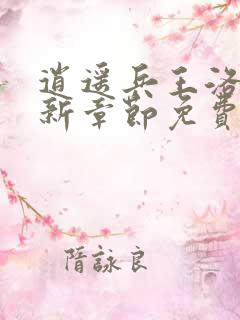 逍遥兵王洛
新章節免費
隋詠良